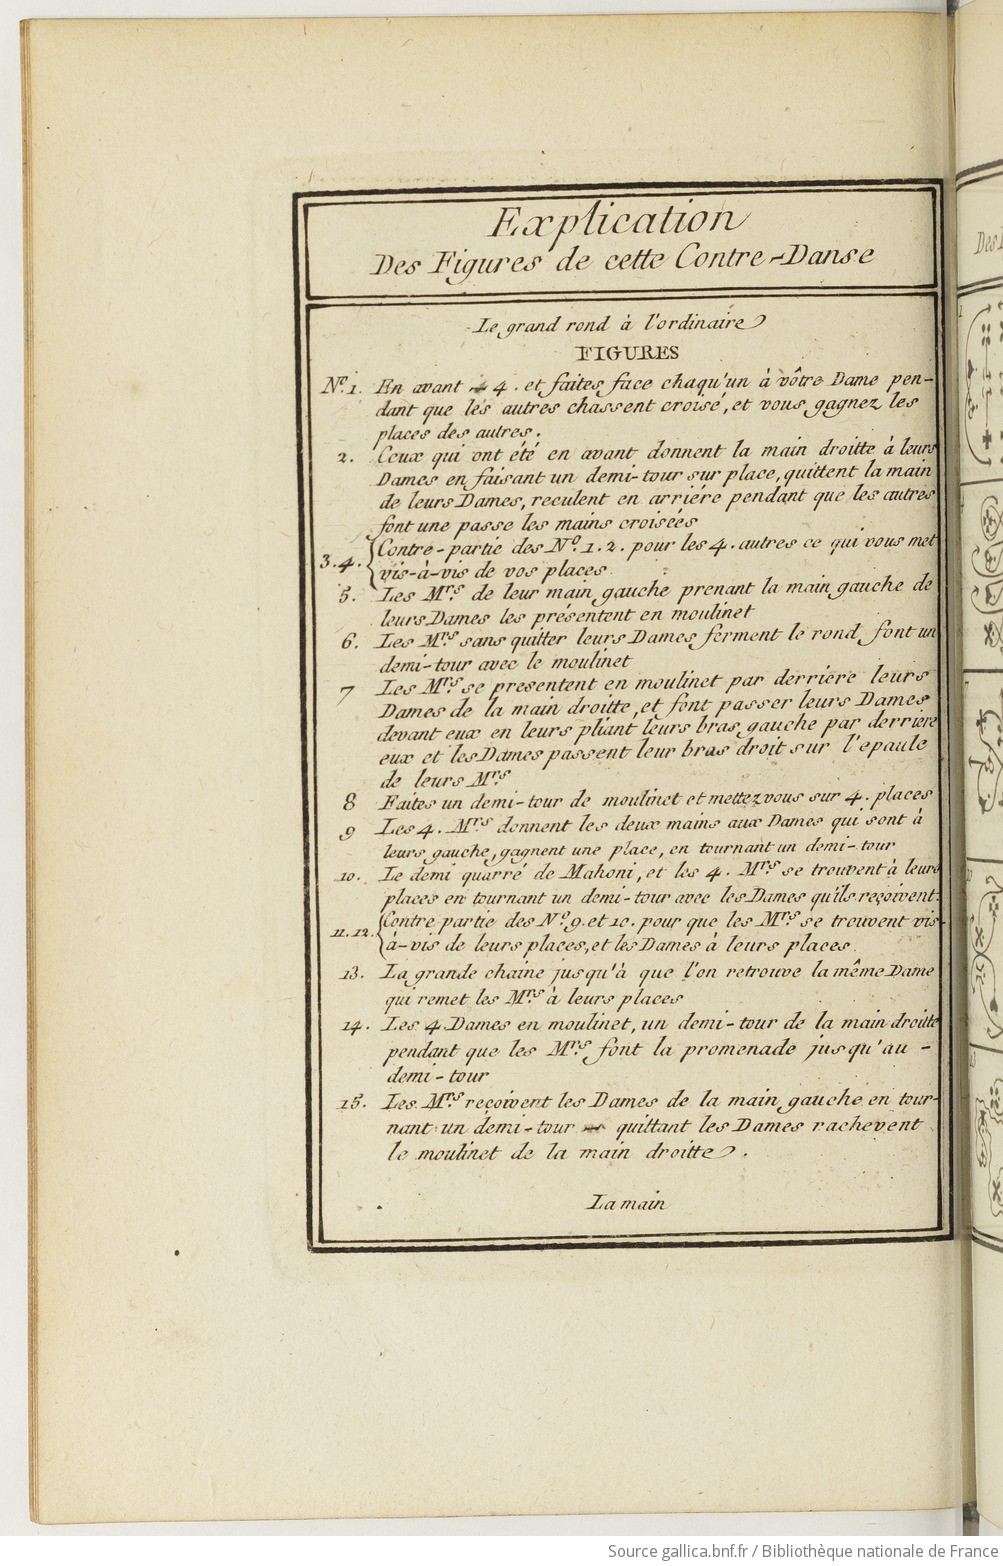 Explication
Des Figures de cette Contre-Danse
Le grand rond à l'ordinaire
FIGURES
Nº. 1. En avant 4. et faites face chaqu'un à vôtre Dame pen-
dant que les autres chassent croisé, et vous gagnez les
places des autres.
2. Ceux qui ont été en avant donnent la main droitte à leurs
Dames en faisant un demi-tour sur place, quittent la main
de leurs Dames, reculent en arriére pendant que les autres
font une passe les mains croiseés
3.4. Contre-partie des Nº. 1. 2. pour les 4. autres ce qui vous met
vis-à-vis de vos places.
5. Les Mrs. de leur main gauche prenant la main gauche de
leurs Dames les présentent en moulinet
6. Les Mrs. sans quitter leurs Dames ferment le rond font un
demi-tour avec le moulinet
7 Les Mrs. se presentent en moulinet par derriere leurs
Dames de la main droitte, et font passer leurs Dames
devant eux en leurs pliant leurs bras gauche par derriere
eux et les Dames passent leur bras droit sur l'epaule
de leurs Mrs.
8 Faites un demi-tour de moulinet et mettez vous sur 4. places
9 Les 4. Mrs. donnent les deux mains aux Dames qui sont à
leurs gauche, gagnent une place, en tournant un demi-tour
10. Le demi quarré de Mahoni, et les 4. Mrs. se trouvent à leurs
places en tournant un demi-tour avec les Dames qu'ils reçoivent.
11.12. Contre partie des Nº. 9. et 10. pour que les Mrs. se trouvent vis-
à-vis de leurs places, et les Dames à leurs places.
13. La grande chaine jusqu'à que l'on retrouve la même Dame
qui remet les Mrs. à leurs places
14. Les 4 Dames en moulinet, un demi-tour de la main droitte
pendant que les Mrs. font la promenade jusqu'au -
demi-tour
15. Les Mrs. reçoivent les Dames de la main gauche en tour-
nant un demi-tour quittant les Dames rachevent
le moulinet de la main droitte.
La main
Des
Source gallica.bnf.fr / Bibliothèque nationale de France